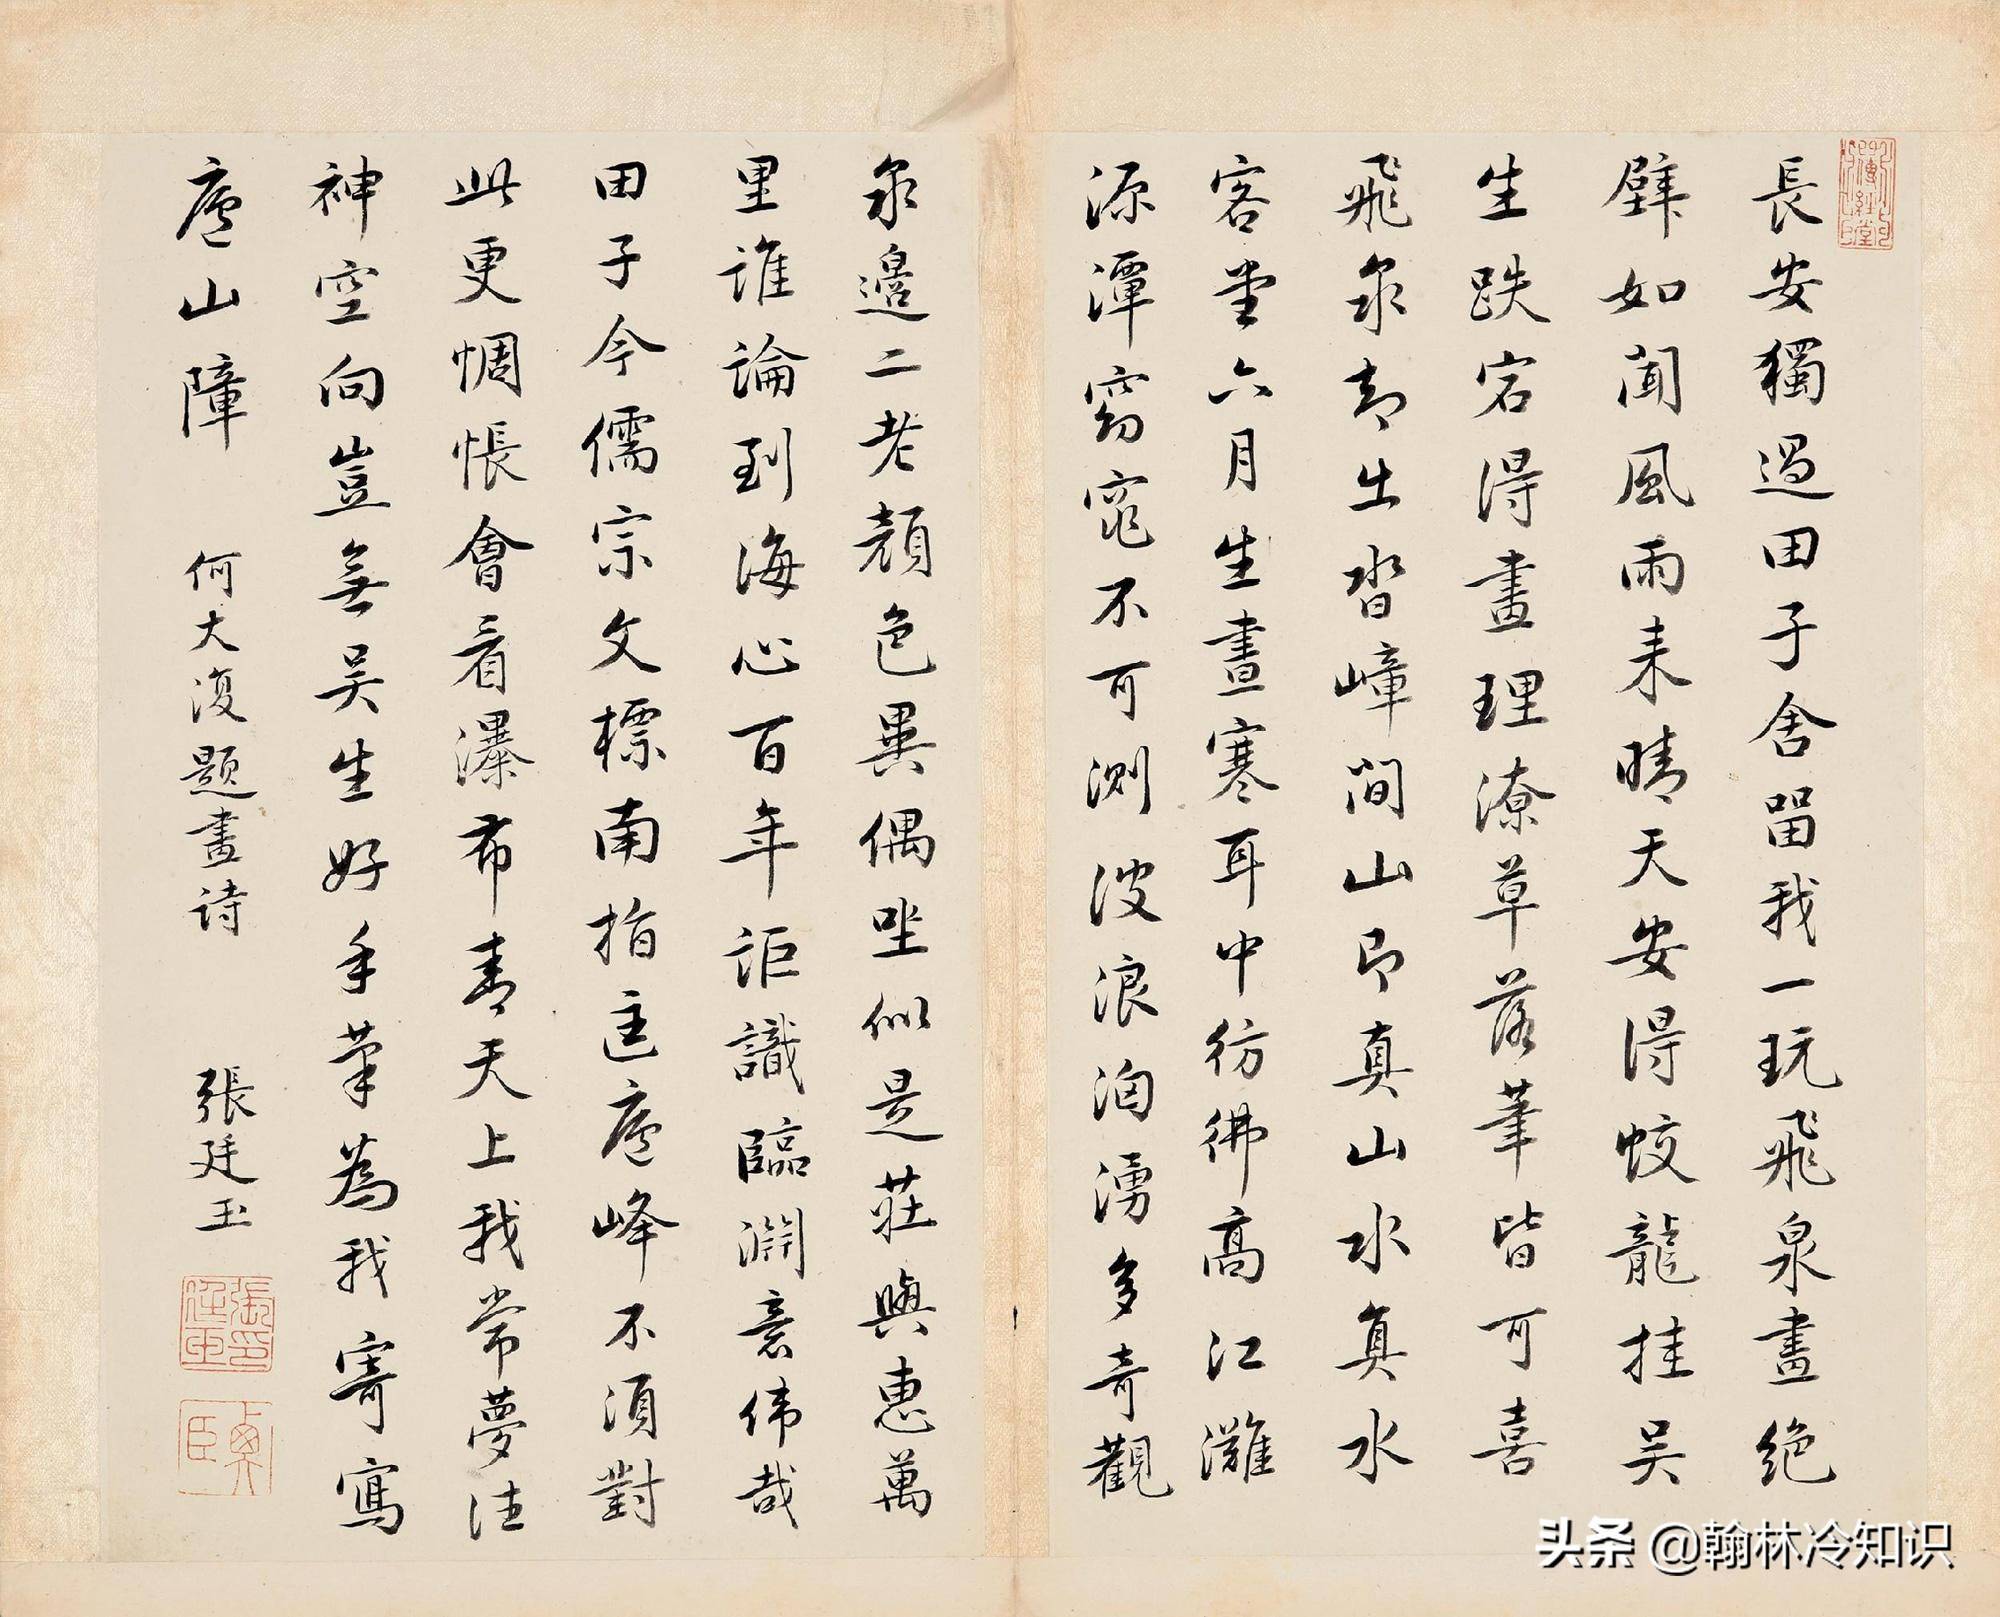 長安獨過田子舍留我一玩飛泉畫絶
壁如聞風雨来晴天安得蛟龍挂吴
生跌宕得畫理潦草落筆皆可喜
飛泉却出沓嶂間山即真山水真水
客堂六月生晝寒耳中彷彿高江灘
源潭窈窕不可測波浪洶湧多奇觀
泉邊二老顔色異偶坐似是莊與惠萬
里誰論到海心百年詎識臨淵意偉哉
田子今儒宗文標南指匡廬峰不須對
此更惆悵會看瀑布青天上我常夢往
神空向豈無吴生好手筆為我寄寫
廬山障 何大復題畫詩 張廷玉
張廷玉印
衡臣
头条 @翰林冷知识